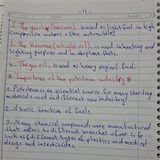 2. The gasoline (benzene) is used as light fuel in high
compression motors of the automobiles.
3. The Kerosene (white oil) is used in heating and
lighting purposes and in aircraft fuels.
4. The gas oil is used as heavy engines fuel.
* Importance of the petroleum industry *
1. Petroleum is an essential source for many starting
materials used in different new industry.
2. A basic function of fuels.
3. Many chemical compounds were manufactured
which enters in different branches of our life
such as different types of plastics and medical
drugs and insecticides.